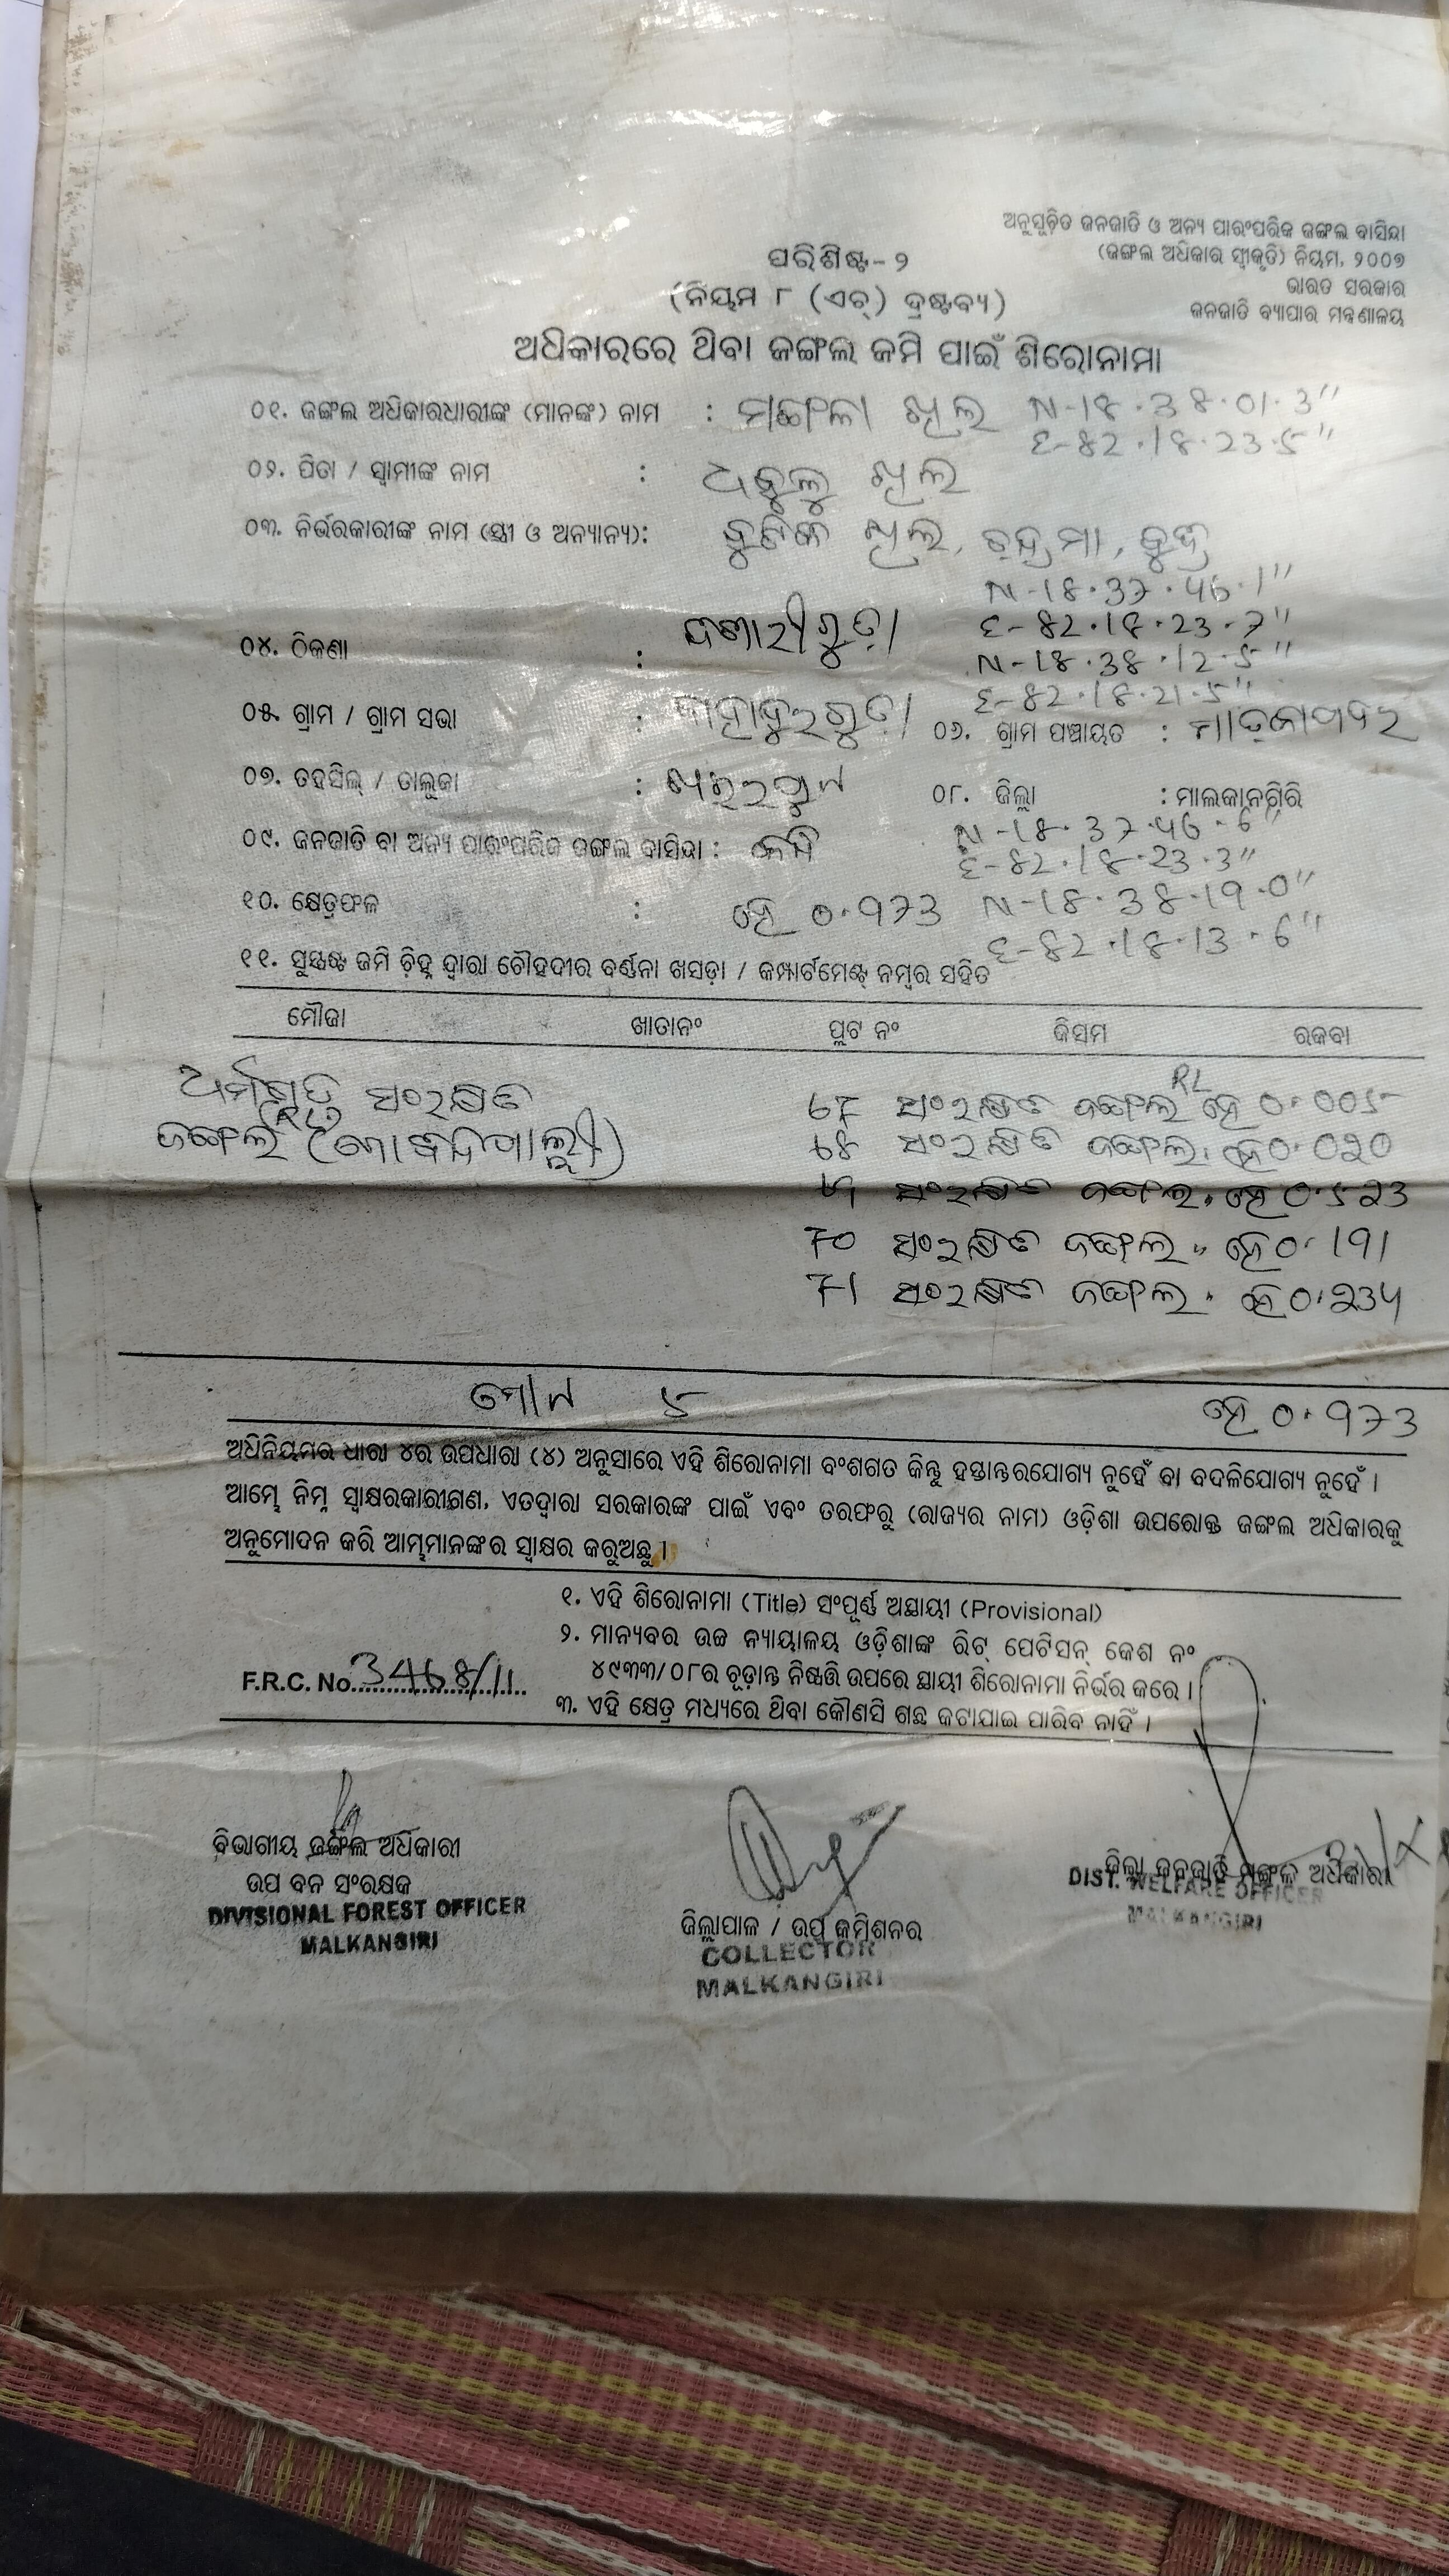 ଅନୁସୂଚିତ ଜନଜାତି ଓ ଅନ୍ୟ ପାରଂପରିକ ଜଙ୍ଗଲ ବାସିନ୍ଦା
(ଜଙ୍ଗଲ ଅଧିକାର ସ୍ୱୀକୃତି) ନିୟମ, ୨୦୦୭
ଭାରତ ସରକାର
ଜନଜାତି ବ୍ୟାପାର ମନ୍ତ୍ରଣାଳୟ
ପରିଶିଷ୍ଟ-୨
(ନିୟମ ୮ (ଏଚ୍) ଦ୍ରଷ୍ଟବ୍ୟ)
ଅଧିକାରରେ ଥିବା ଜଙ୍ଗଲ ଜମି ପାଇଁ ଶିରୋନାମା
୦୧. ଜଙ୍ଗଲ ଅଧିକାରଧାରୀଙ୍କ (ମାନଙ୍କ) ନାମ : ମଙ୍ଗଳା ଖିଲ N-18.38.01.3"
E-82.18.23.5"
୦୨. ପିତା / ସ୍ୱାମୀଙ୍କ ନାମ : ଖିଲ
୦୩. ନିର୍ଭରକାରୀଙ୍କ ନାମ (ସ୍ତ୍ରୀ ଓ ଅନ୍ୟାନ୍ୟ): ଖିଲ, ଚନ୍ଦ୍ରମା,
N-18.37.46.1"
୦୪. ଠିକଣା : E-82.18.23.7"
N-18.38.12.5"
E-82.18.21.5"
୦୫. ଗ୍ରାମ / ଗ୍ରାମ ସଭା : ୦୬. ଗ୍ରାମ ପଞ୍ଚାୟତ :
୦୭. ତହସିଲ୍ / ତାଲୁକା : ୦୮. ଜିଲ୍ଲା : ମାଲକାନଗିରି
N-18.37.46.6"
୦୯. ଜନଜାତି ବା ଅନ୍ୟ ପାରଂପରିକ ଜଙ୍ଗଲ ବାସିନ୍ଦା : E-82.18.23.3"
୧୦. କ୍ଷେତ୍ରଫଳ : ହେ ୦.973 N-18.38.19.0"
E-82.18.13.6"
୧୧. ସୁସ୍ପଷ୍ଟ ଜମି ଚିହ୍ନ ଦ୍ୱାରା ଚୌହଦୀର ବର୍ଣ୍ଣନା ଖସଡ଼ା / କମ୍ପାର୍ଟମେଣ୍ଟ୍ ନମ୍ବର ସହିତ
ମୌଜା ଖାତାନଂ ପ୍ଲଟ ନଂ କିସମ ରକବା
ସଂରକ୍ଷିତ 67 ସଂରକ୍ଷିତ ଜଙ୍ଗଲ RL ହେ 0.005
ଜଙ୍ଗଲ 68 ସଂରକ୍ଷିତ ଜଙ୍ଗଲ ହେ 0.020
69 ସଂରକ୍ଷିତ ଜଙ୍ଗଲ ହେ 0.523
70 ସଂରକ୍ଷିତ ଜଙ୍ଗଲ " ହେ 0.191
71 ସଂରକ୍ଷିତ ଜଙ୍ଗଲ " ହେ 0.234
ମୋଟ 5 ହେ 0.973
ଅଧିନିୟମର ଧାରା ୪ର ଉପଧାରା (୪) ଅନୁସାରେ ଏହି ଶିରୋନାମା ବଂଶଗତ କିନ୍ତୁ ହସ୍ତାନ୍ତରଯୋଗ୍ୟ ନୁହେଁ ବା ବଦଳିଯୋଗ୍ୟ ନୁହେଁ ।
ଆମ୍ଭେ ନିମ୍ନ ସ୍ୱାକ୍ଷରକାରୀଗଣ, ଏତଦ୍ୱାରା ସରକାରଙ୍କ ପାଇଁ ଏବଂ ତରଫରୁ (ରାଜ୍ୟର ନାମ) ଓଡ଼ିଶା ଉପରୋକ୍ତ ଜଙ୍ଗଲ ଅଧିକାରକୁ
ଅନୁମୋଦନ କରି ଆମ୍ଭମାନଙ୍କର ସ୍ୱାକ୍ଷର କରୁଅଛୁ ।
୧. ଏହି ଶିରୋନାମା (Title) ସଂପୂର୍ଣ୍ଣ ଅସ୍ଥାୟୀ (Provisional)
୨. ମାନ୍ୟବର ଉଚ୍ଚ ନ୍ୟାୟାଳୟ ଓଡ଼ିଶାଙ୍କ ରିଟ୍ ପେଟିସନ୍ କେଶ ନଂ
୪୯୩୩/୦୮ର ଚୂଡ଼ାନ୍ତ ନିଷ୍ପତ୍ତି ଉପରେ ସ୍ଥାୟୀ ଶିରୋନାମା ନିର୍ଭର କରେ ।
F.R.C. No. 3468/11
୩. ଏହି କ୍ଷେତ୍ର ମଧ୍ୟରେ ଥିବା କୌଣସି ଗଛ କଟାଯାଇ ପାରିବ ନାହିଁ ।
ବିଭାଗୀୟ ଜଙ୍ଗଲ ଅଧିକାରୀ
ଉପ ବନ ସଂରକ୍ଷକ
DIVISIONAL FOREST OFFICER
MALKANGIRI
ଜିଲ୍ଲାପାଳ / ଉପ କମିଶନର
COLLECTOR
MALKANGIRI
ଜିଲ୍ଲା ଜନଜାତି ମଙ୍ଗଳ ଅଧିକାରୀ
DIST. WELFARE OFFICER
MALKANGIRI